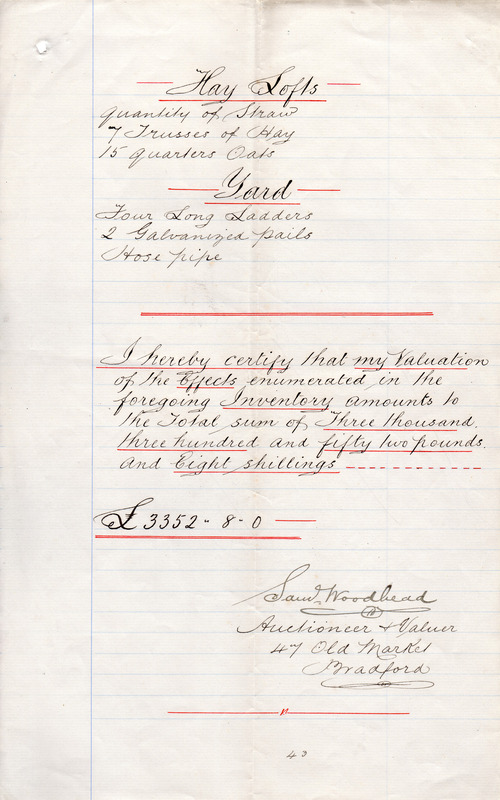 Hay Lofts
quantity of Straw
7 Trusses of Hay
15 quarters Oats
Yard
Four Long Ladders
2 Galvanized pails
Hose pipe
I hereby certify that my Valuation
of the Effects enumerated in the
foregoing Inventory amounts to
the Total sum of Three thousand.
three hundred and fifty two pounds.
and Eight shillings
£ 3352 - 8 - 0
Saml. Woodhead
Auctioneer & Valuer
47 Old Market
Bradford
43